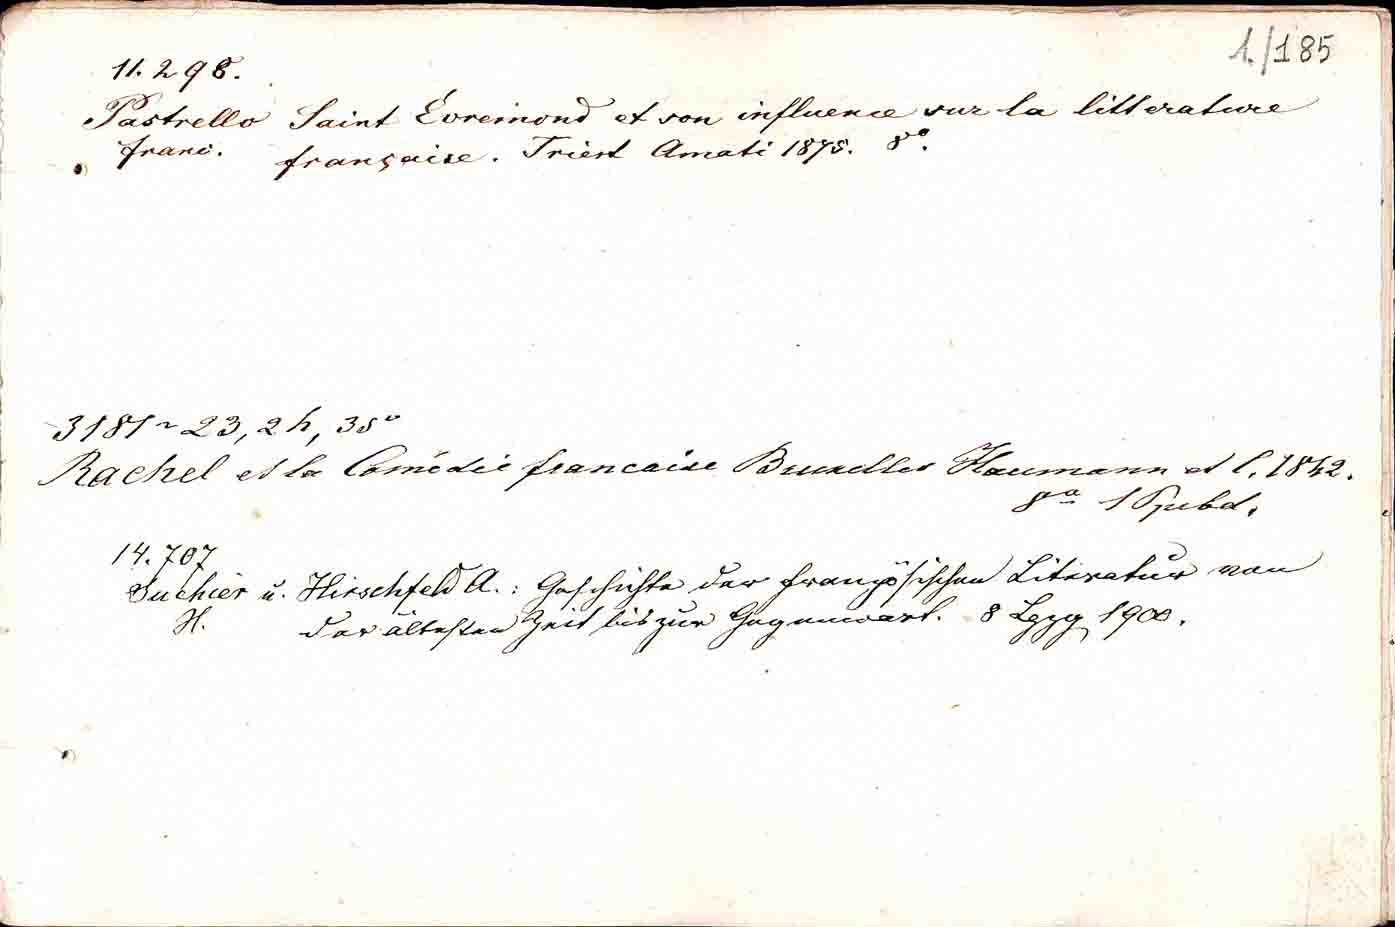 1./185
11.298.
Pastrello Saint Évremond et son influence sur la litterature
franc. française. Triest Amati 1875. 8°.
3181~23, 2h, 35°
Rachel et la Comédie francaise Bruxelles Haumann et C. 1842.
8° 1
14.707
Suchier u. Hirschfeld A.: Geschichte der französischen Literatur von
H. der ältesten Zeit bis zur Gegenwart. 8 Lpzg 1900.